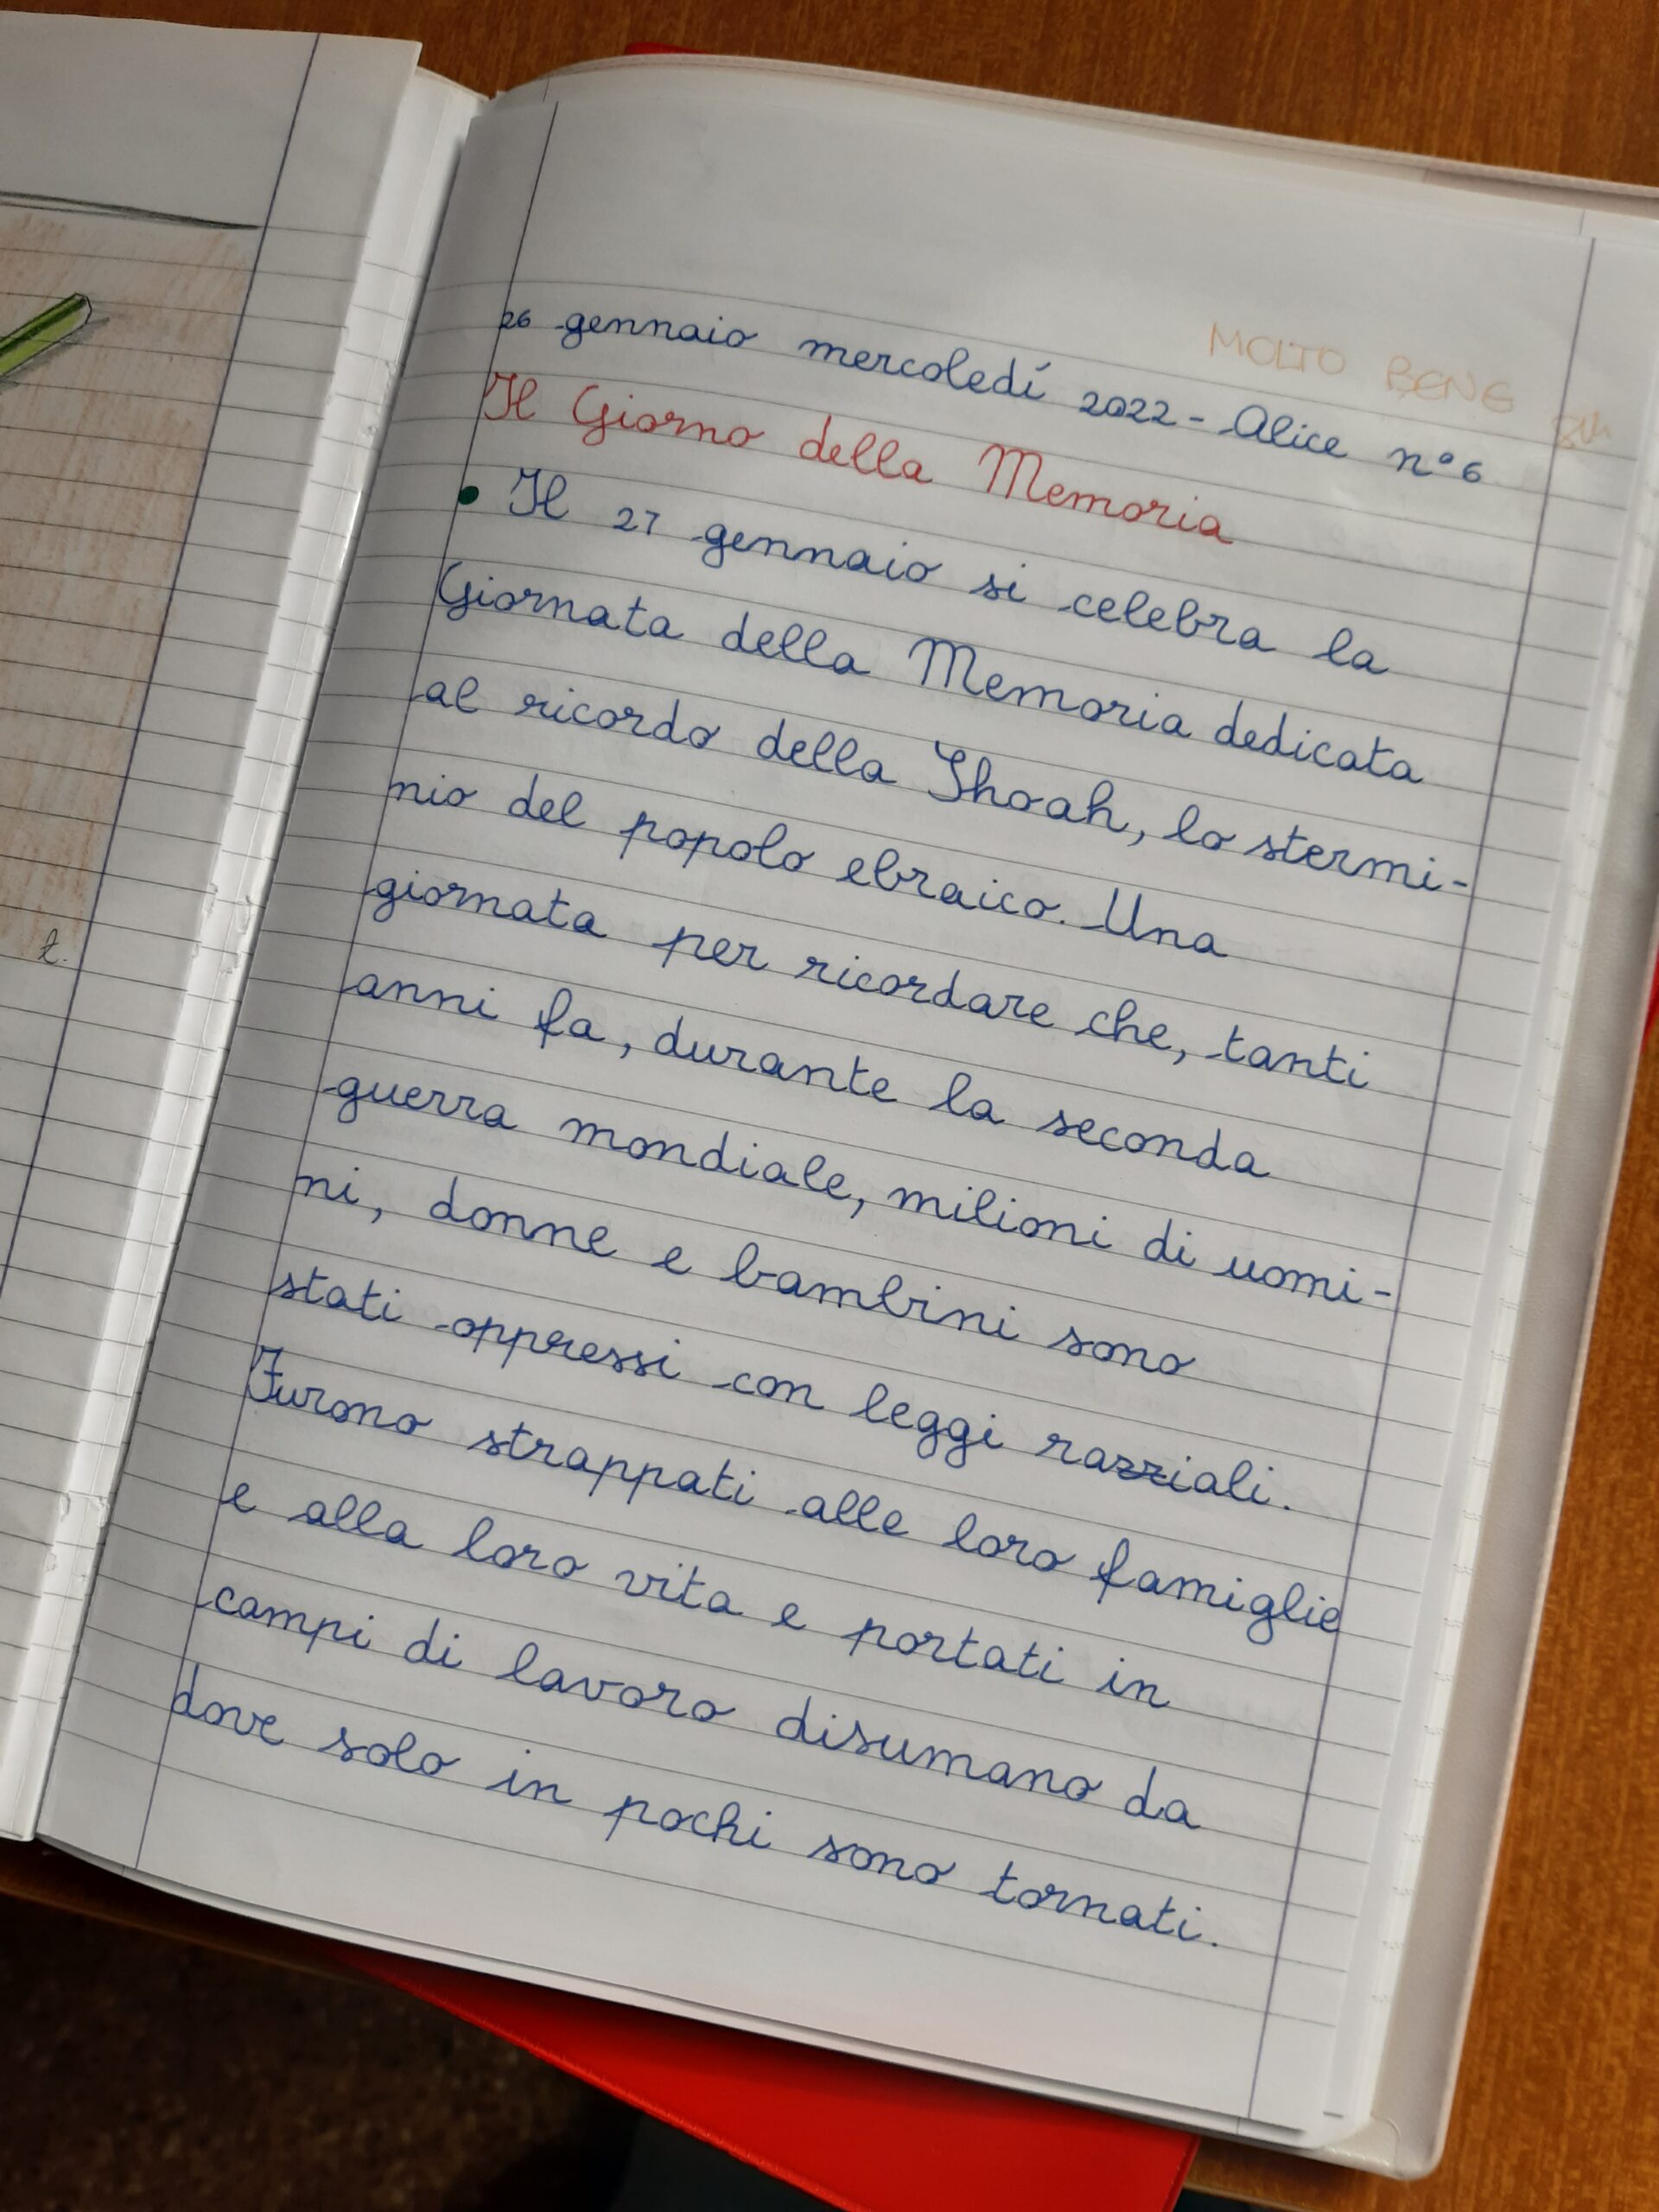 MOLTO BENE
26 gennaio mercoledí 2022 - Alice n° 6
Il Giorno della Memoria
• Il 27 gennaio si celebra la
Giornata della Memoria dedicata
al ricordo della Shoah, lo stermi-
nio del popolo ebraico. Una
giornata per ricordare che, tanti
anni fa, durante la seconda
guerra mondiale, milioni di uomi-
ni, donne e bambini sono
stati oppressi con leggi razziali.
Furono strappati alle loro famiglie
e alla loro vita e portati in
campi di lavoro disumano da
dove solo in pochi sono tornati.